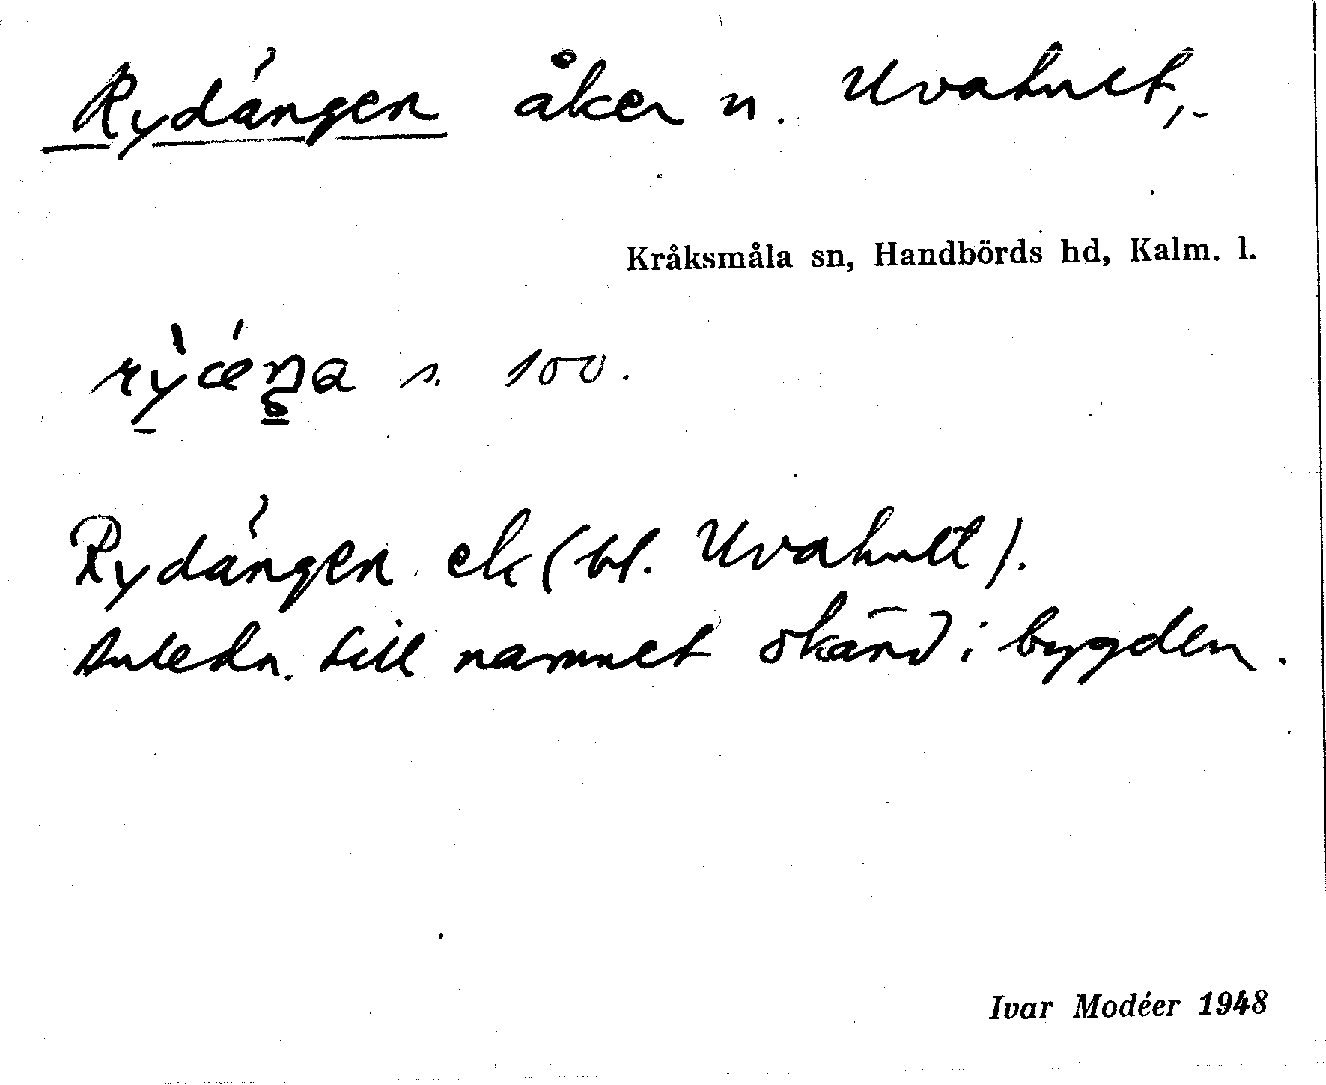 Rydängen åker n. Uvahult,-
Kråksmåla sn, Handbörds hd, Kalm. l.
rỳǽŋa s. 100.
Rydängen ek (bl. Uvahult).
Anledn. till namnet okänd i bygden.
Ivar Modéer 1948